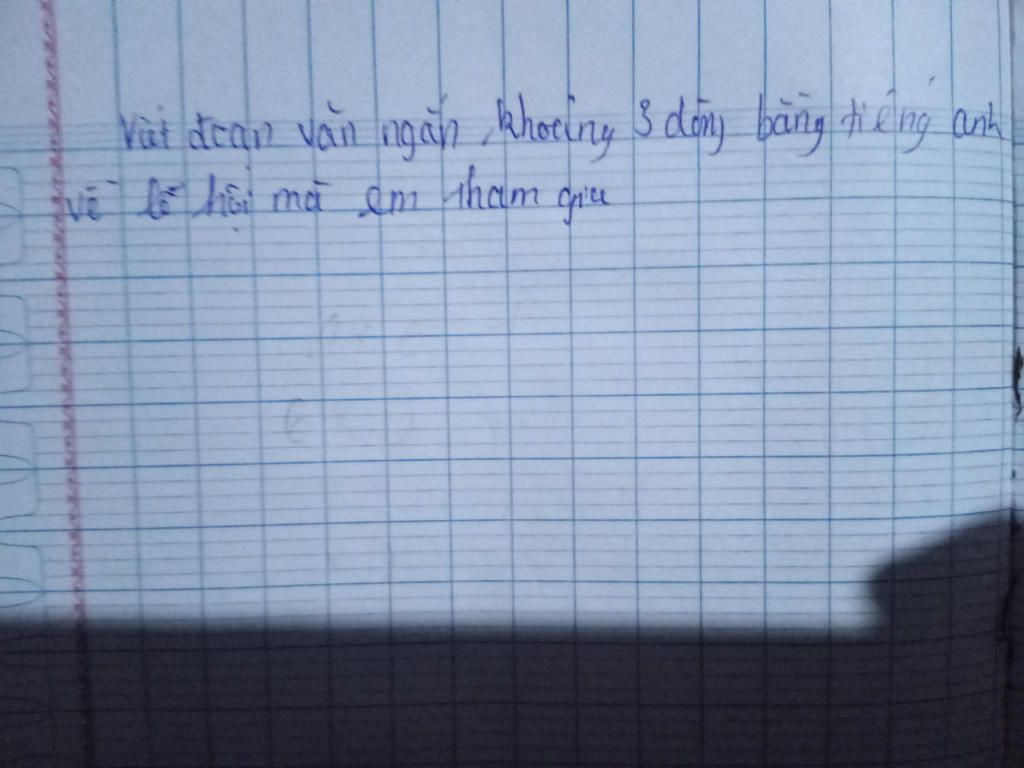 Viết đoạn văn ngắn, khoảng 3 dòng bằng tiếng anh
về lễ hội mà em tham gia